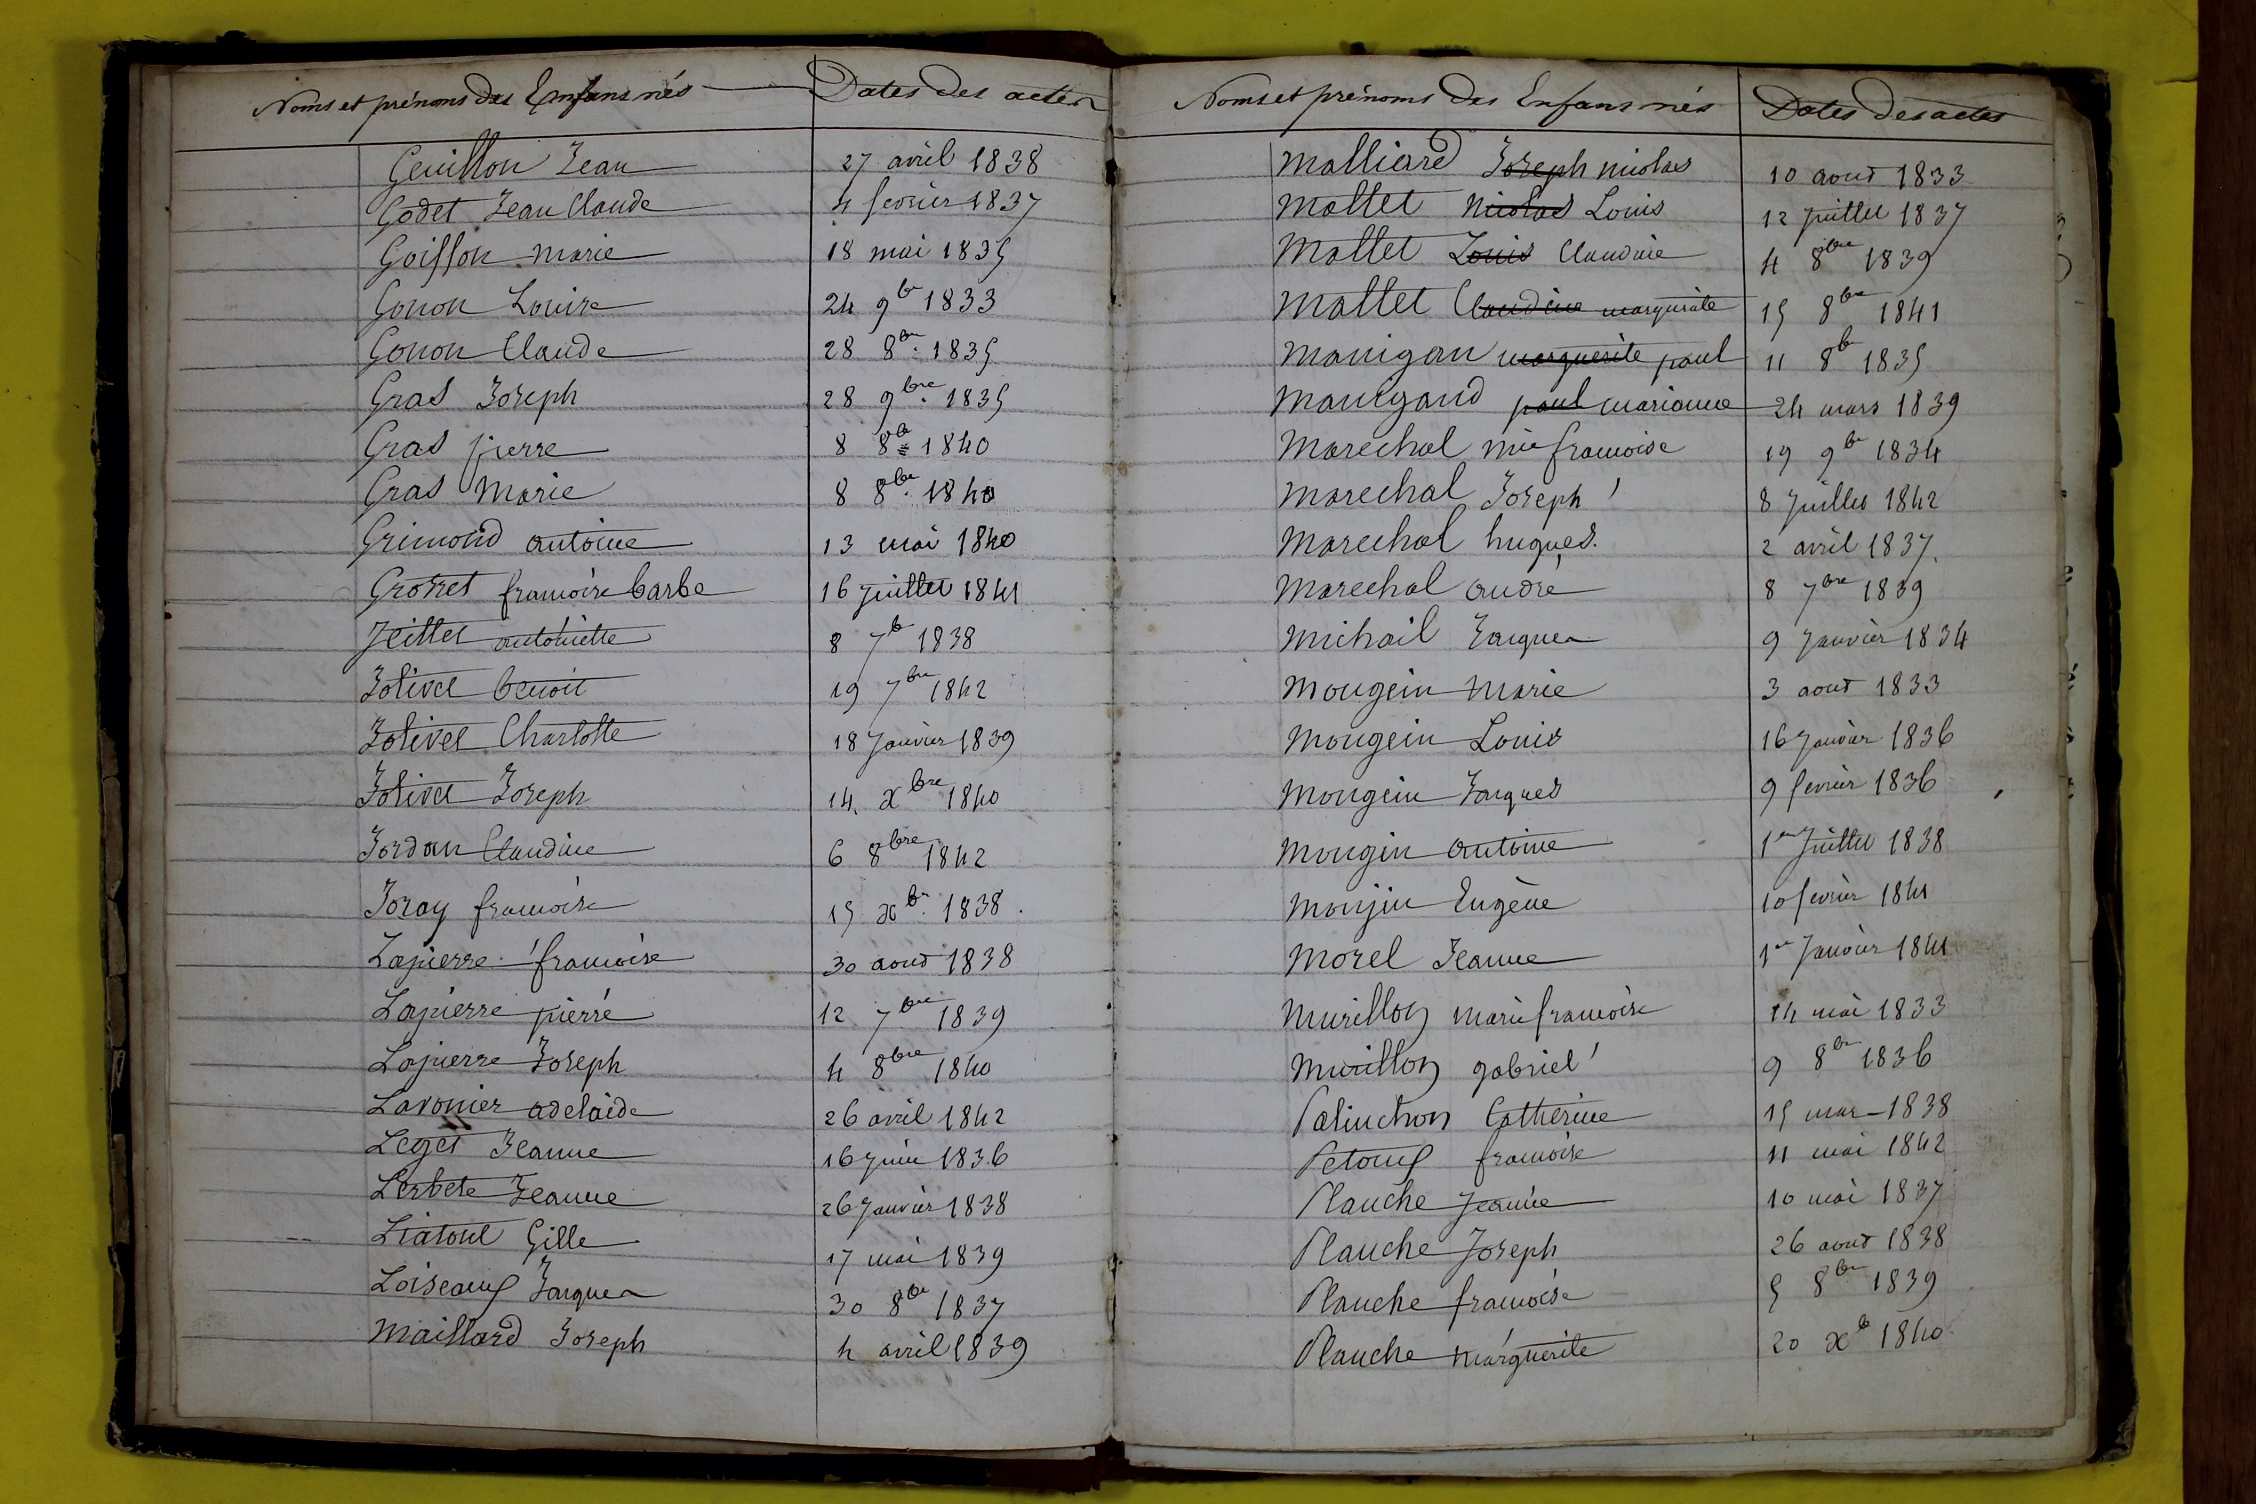 Noms et prénoms des Enfans nés Dates des actes
Geuillon Jean 27 avril 1838
Godet Jean Claude 4 fevrier 1837
Goiffon marie 18 mai 1835
Gonon Louise 24 9bre 1833
Gonon Claude 28 8bre 1835
Gras Joseph 28 9bre 1835
Gras pierre 8 8bre 1840
Gras Marie 8 8bre 1840
Grimond antoine 13 mai 1840
Grosset francoise barbe 16 Juillet 1841
Jeillet antoinette 8 7b 1838
Jolivet benoit 19 7bre 1842
Jolivet Charlotte 18 Janvier 1839
Jolivet Joseph 14 xbre 1840
Jordan Claudine 6 8bre 1842
Joray francoise 15 xbre 1838.
Lapierre francoise 30 aout 1838
Lapierre pierre 12 7bre 1839
Lapierre Joseph 4 8bre 1840
Lavonier adelaide 26 avril 1842
Leget Jeanne 16 Juin 1836
Lerbete Jeanne 26 Janvier 1838
Liatout Gille 17 mai 1839
Loiseaux Jacques 30 8bre 1837
Maillard Joseph 4 avril 1839
Noms et prénoms des Enfans nés Dates des actes
Malliard Joseph nicolas 10 aout 1833
Mallet Nicolas Louis 12 Juillet 1837
Mallet Louis Claudine 4 8bre 1839
Mallet Claudine marguerite 15 8bre 1841
Manigan marguerite paul 11 8b 1835
Manigand paul marianne 24 mars 1839
Marechal mie francoise 19 9b 1834
Marechal Joseph 8 Juillet 1842
Marechal hugues. 2 avril 1837.
Marechal andré 8 7bre 1839
Michail Jacques 9 Janvier 1834
Mougein Marie 3 aout 1833
Mougein Louis 16 Janvier 1836
Mougein Jacques 9 fevrier 1836
Mougin antoine 1er Juillet 1838
Moujin Eugène 10 fevrier 1841
Morel Jeanne 1er Janvier 1841
Murillon marie francoise 14 mai 1833
Murillon gabriel 9 8bre 1836
Palinchon Catherine 15 mar 1838
Petoux francoise 11 mai 1842
Planche Jeanne 10 mai 1837
Planche Joseph 26 aout 1838
Planche francoise 5 8bre 1839
Planche marguerite 20 xb 1840